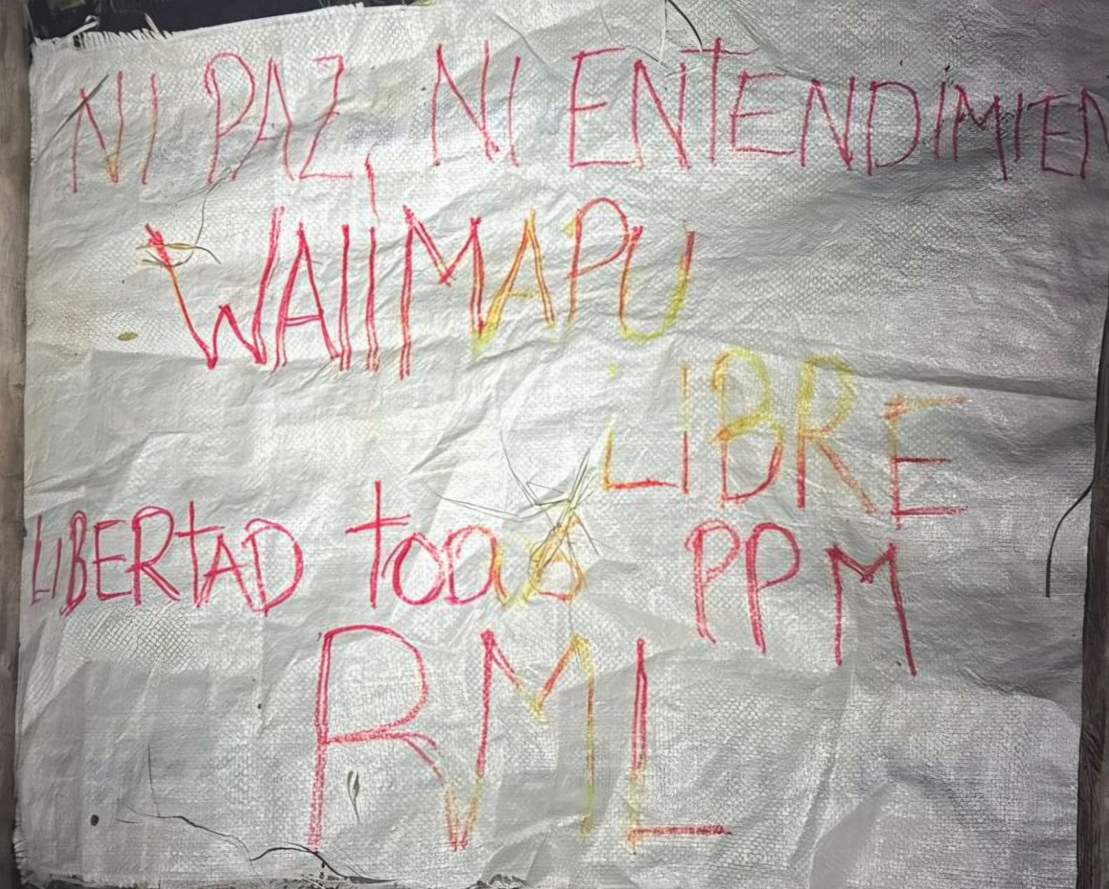 NI PAZ, NI ENTENDIMIEN
WAllMAPU
LIBRE
LIBERTAD todos PPM
RML